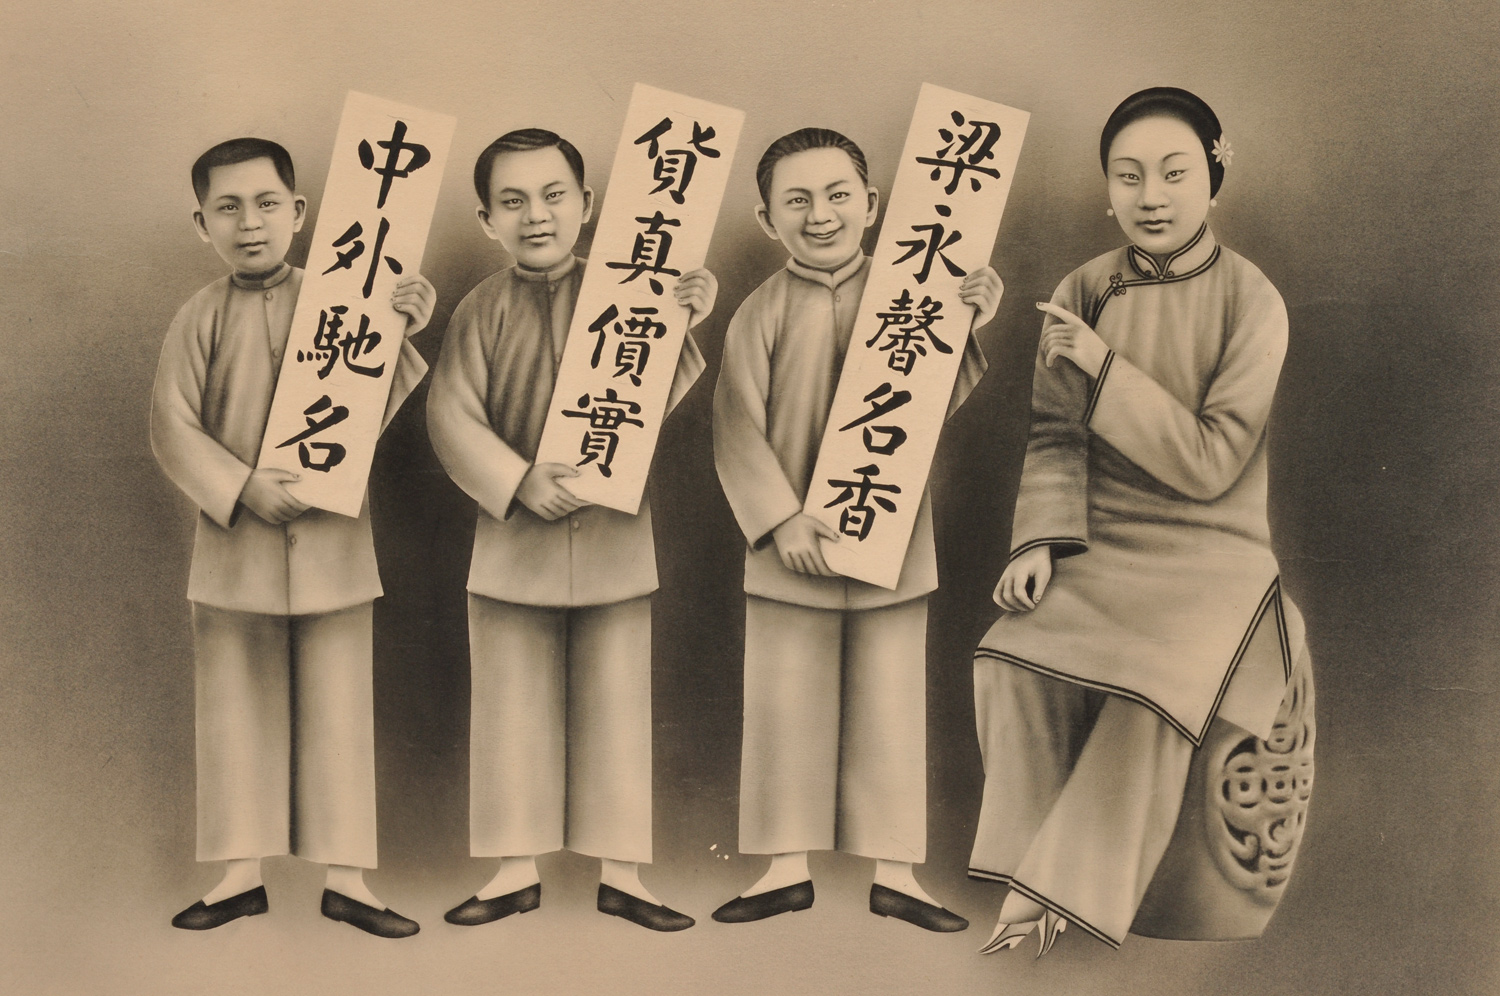 梁永馨名香
貨真價實
中外馳名